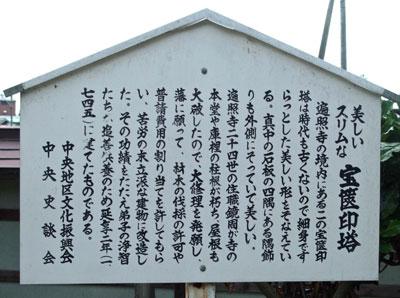 美しい
スリムな 宝篋印塔
遍照寺の境内にあるこの宝篋印
塔は時代も古くないので細身です
らっとした美しい形をそなえてい
る。真中の石板の四隅にある隅飾
りも外側にそっていて美しい。
遍照寺二十四世の住職鏡周が寺の
本堂や庫裡の柱根が朽ち、屋根も
大破したので、大修理を発願し、
藩に願って、材木の伐採の許可や
普請費用の割り当てを許してもら
い、苦労の末立派な建物に改造し
た。その功績をたたえ弟子の浄智
たちが追善供養のため延享二年(一
七四五)に建てたものである。
中央地区文化振興会
中央史談会